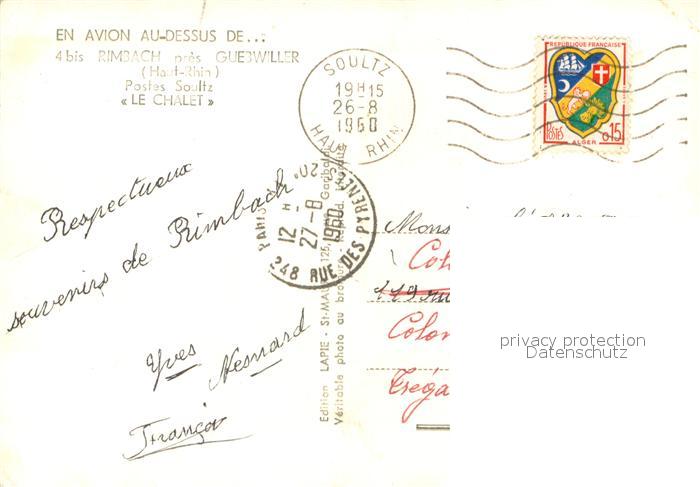 EN AVION AU-DESSUS DE...
4 bis RIMBACH près GUEBWILLER
(Haut-Rhin)
Postes Soultz
« LE CHALET »
SOULTZ
19H15
26-8
1960
HAUT RHIN
REPUBLIQUE FRANÇAISE
POSTES
0,15
ALGER
PARIS 20
12 H
27-8
1960
248 RUE DES PYRENEES
Respectueux
souvenirs de Rimbach
Yves
François
Edition LAPIE - St-MAUR
Véritable photo au bromure
Mons
Col
119 rue
Colon
Tréga
privacy protection
Datenschutz